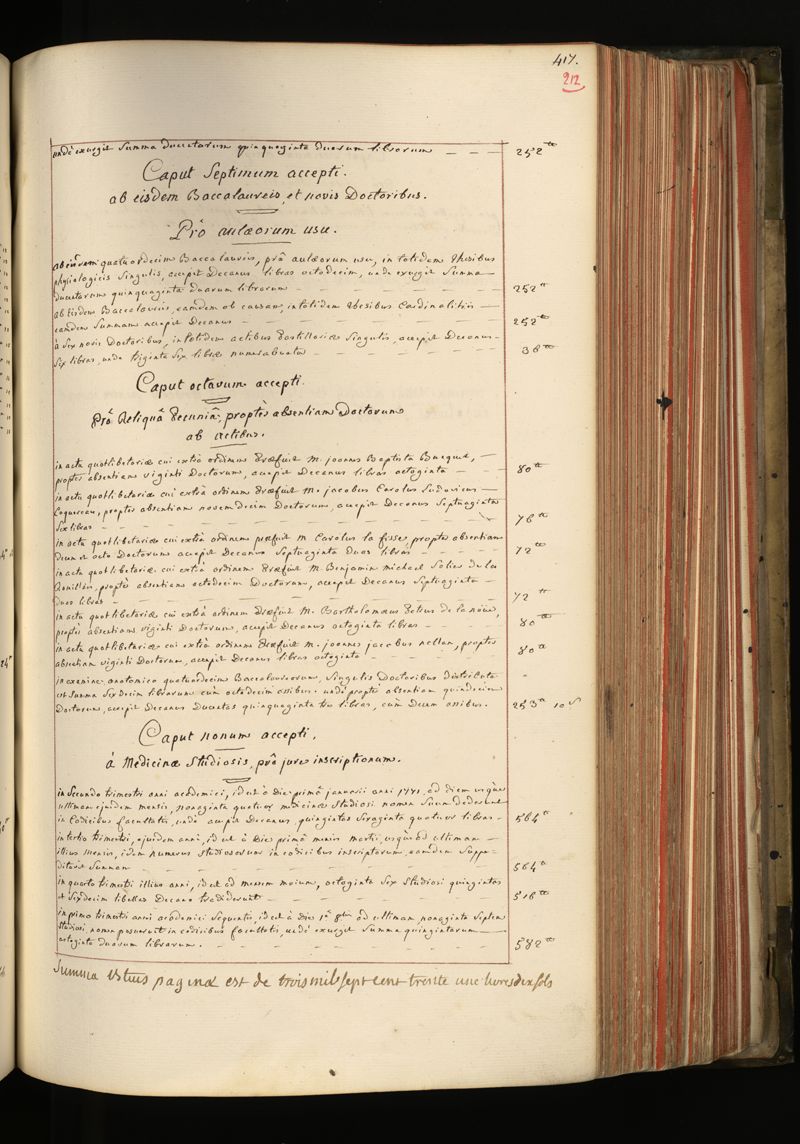 417.
212
undè exurgit Summa ducentarum quinquaginta duarum librarum — — — 252 tt
Caput Septimum accepti.
ab eisdem Baccalaureis, et novis Doctoribus.
Prô aulæorum usu.
quatuordecim Baccalaureis, prô aulæorum usu, in totidem thesibus
physiologicis Singulis, accepit Decanus libras octodecim, unde exurgit Summa —
ducentarum quinquaginta duarum librarum — — 252 tt
ab Eisdem Baccalaureis, eamdem ob causam, in totidem thesibus Cardinalitiis —
eamdem Summam accepit Decanus — — 252 tt
à Sex novis Doctoribus, in totidem actibus Pastillariæ Singulis, accepit Decanus —
Sex libras, unde triginta Sex libræ numerabantur — — 36 tt
Caput octavum accepti.
Prô Reliquâ Pecuniâ, proptèr absentiam Doctorum
ab Actibus.
in actu quotlibetariæ cui extrà ordinem Præfuit M. joannes Baptista —
proptèr absentiam viginti Doctorum, accepit Decanus libras octoginta — — 80 tt
in actu quotlibetariæ cui extrà ordinem Præfuit M. jacobus Carolus Ludovicus —
proptèr absentiam novemdecim Doctorum, accepit Decanus Septuaginta
Sex libras — — 76 tt
in actu quotlibetariæ cui extrà ordinem præfuit M Carolus la fisse, proptèr absentiam
decem et octo Doctorum accepit Decanus Septuaginta duas libras — — 72 tt
in actu quotlibetariæ cui extrà ordinem Præfuit M. Benjamin michael Solier de la
Romillais, proptèr absentiam octodecim Doctorum, accepit Decanus Septuaginta —
duas libras — — 72 tt
in actu quotlibetariæ cui extrà ordinem Præfuit M. Bartholomæus Petrus de la
proptèr absentiam viginti Doctorum, accepit Decanus octoginta libras — — 80 tt
in actu quotlibetariæ cui extrà ordinem Præfuit M. joannes jacobus nollan, proptèr
absentiam viginti Doctorum, accepit Decanus libras octoginta — — 80 tt
in examine anatomico quatuordecim Baccalaureorum, Singulis Doctoribus distributa
est Summa Sexdecim librarum cùm octodecim assibus. undè proptèr absentiam quindecim
Doctorum, accepit Decanus Ducentas quinquaginta tres libras, cùm Decem assibus. 253 tt 10 s
Caput nonum accepti,
à Medicinæ Studiosis, prô jure inscriptionum.
in Secundo trimestri anni academici, id est à Die primâ januarii anni ad diem usque
ultimam ejusdem mensis, nonaginta quatuor medicinæ Studiosi nomen Suum dederunt
in Codicibus facultatis, unde accepit Decanus, quingentas Sexaginta quatuor libras — 564 tt
in tertio trimestri, ejusdem anni, id est à Die primâ mensis martii, usque ad ultimam —
illius mensis, idem numerus Studiosorum in codicibus inscriptorum, eamdem Suppe-
ditavit Summam — — 564 tt
in quarto trimestri illius anni, id est ad mensem maium, octoginta Sex Studiosi quingentas
et Sexdecim libellas Decano tradiderunt — — 516 tt
in primo trimestri anni academici Sequentis, id est à Die 1â 8bris ad ultimam, nonaginta Septem
Studiosi, nomen posuerunt in codicibus facultatis, undè exurgit Summa quingentarum —
octoginta duarum librarum. — — 582 tt
Summa istius paginæ est de trois mil sept cent trente une livres dix sols